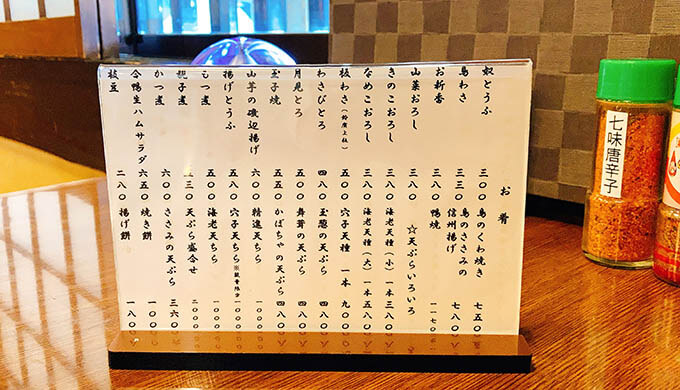 お肴
奴とうふ 三〇〇
鳥わさ 三三〇
お新香 三八〇
山菜おろし 三八〇
きのこおろし 三八〇
なめこおろし 三八〇
板わさ 五〇〇
わさびとろ 四八〇
月見とろ 五〇〇
玉子焼 五五〇
山芋の磯辺揚げ 六〇〇
揚げとうふ 五八〇
もつ煮 五〇〇
親子煮
かつ煮 六八〇
合鴨生ハムサラダ 六五〇
枝豆 二八〇
鳥のくわ焼き 七五〇
鳥のささみの
信州揚げ 七八〇
鴨焼 一一七〇
☆天ぷらいろいろ
海老天種(小)一本 三八〇
海老天種(大)一本 五八〇
穴子天種 一本 九〇〇
玉葱の天ぷら 四八〇
舞茸の天ぷら 四八〇
かぼちゃの天ぷら 四八〇
精進天ちら 一〇〇〇
穴子天ちら※数量限定
海老天ちら
天ぷら盛合せ
ささみの天ぷら 三六〇
焼き餅
揚げ餅 一八〇
七味唐辛子